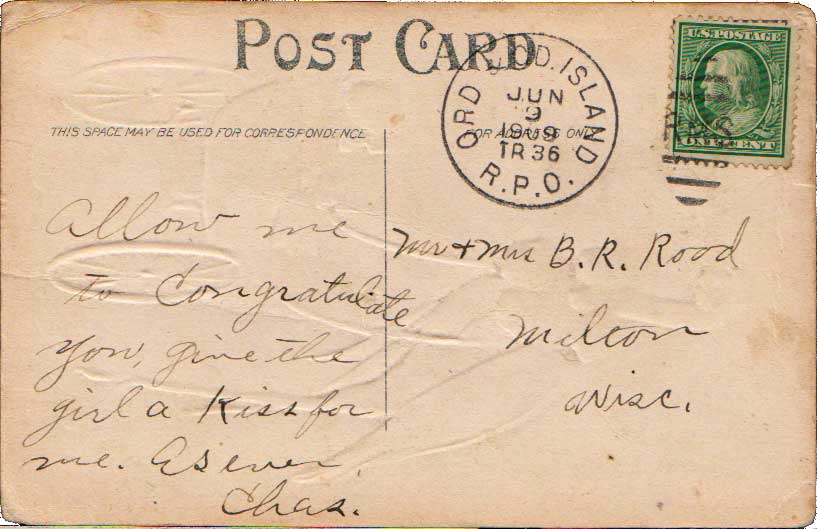 POST CARD
THIS SPACE MAY BE USED FOR CORRESPONDENCE
FOR ADDRESS ONLY
ORD ISLAND
JUN
9
1909
TR 36
R.P.O.
U.S. POSTAGE
ONE CENT
Allow me
to Congratulate
you, give the
girl a Kiss for
me. As ever,
Chas.
Mr + Mrs B. R. Rood
Milton
Wisc.